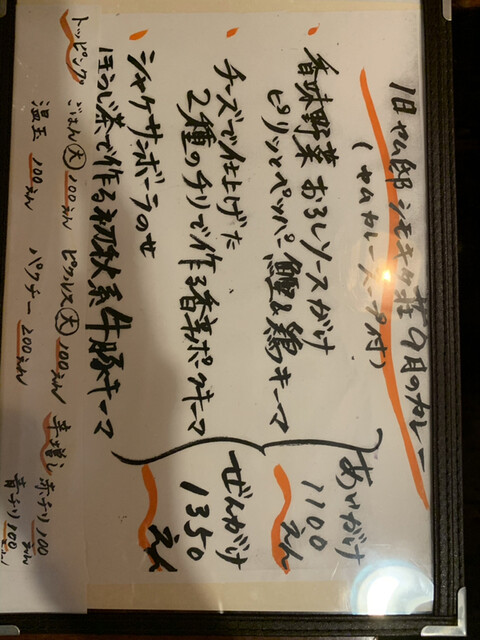 旧ヤム邸 シモキタ荘 9月のカレー
(ヤムカレースープ付)
香味野菜おろしソースがけ
ピリッとペッパー鰹と鶏キーマ
チーズで仕上げた
2種のチリで作る香辛ポークキーマ
シャケサンボーラのせ
ほうじ茶で作る初秋系牛豚キーマ
あいがけ
1100
えん
ぜんがけ
1350
えん
トッピング
ごはん大 100えん
ピクルス大 100えん
辛増し
赤チリ100えん
青チリ100えん
温玉 100えん
パクチー 200えん